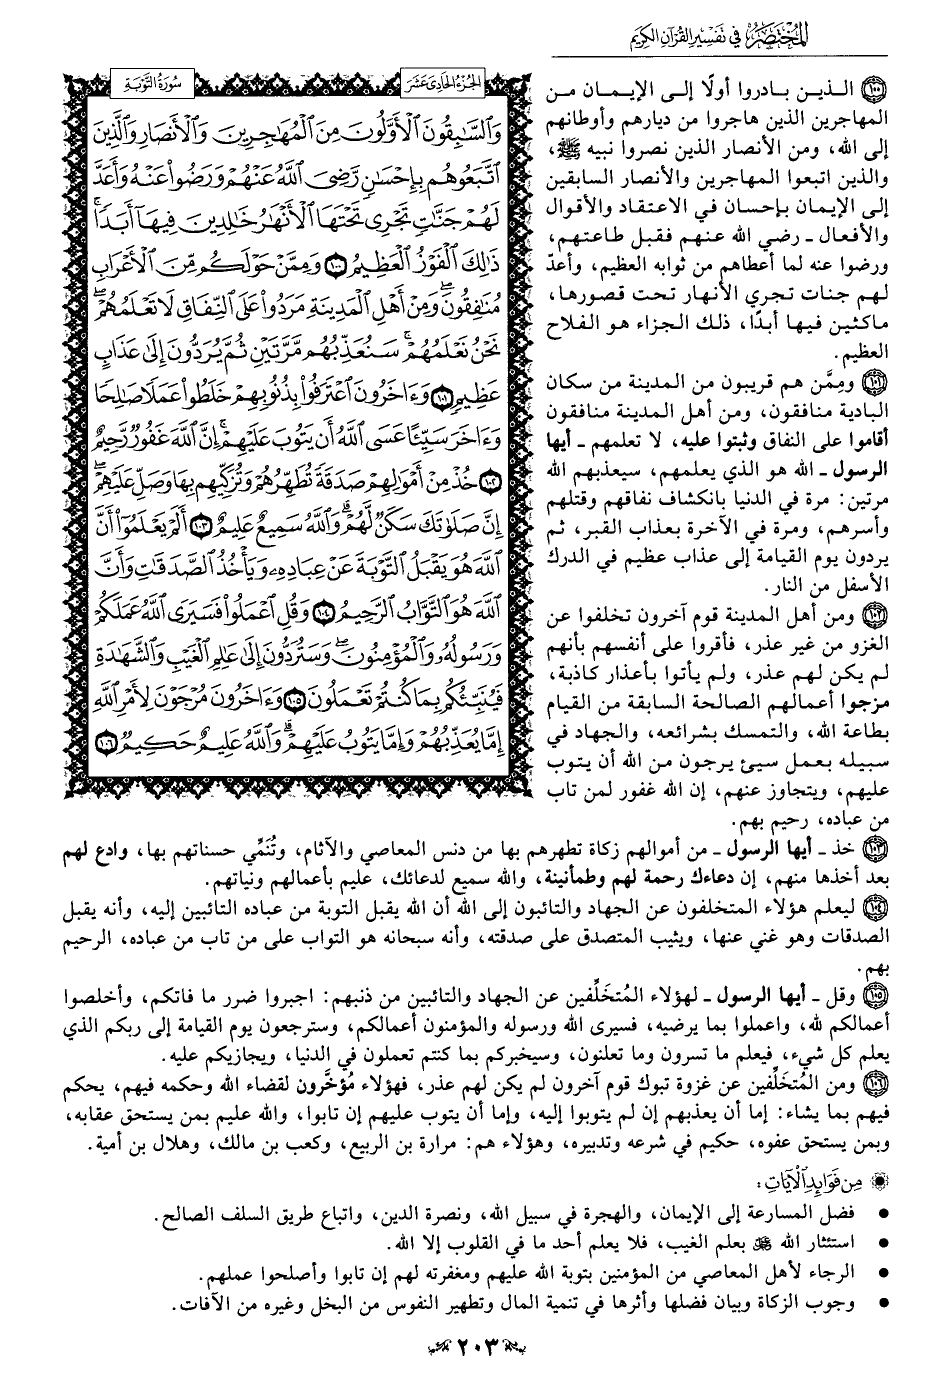 المختصر في تفسير القرآن الكريم
الجزء الحادي عشر
سورة التوبة
وَالسَّابِقُونَ الْأَوَّلُونَ مِنَ الْمُهَاجِرِينَ وَالْأَنصَارِ وَالَّذِينَ
اتَّبَعُوهُم بِإِحْسَانٍ رَّضِيَ اللَّهُ عَنْهُمْ وَرَضُوا عَنْهُ وَأَعَدَّ
لَهُمْ جَنَّاتٍ تَجْرِي تَحْتَهَا الْأَنْهَارُ خَالِدِينَ فِيهَا أَبَدًا
ذَٰلِكَ الْفَوْزُ الْعَظِيمُ ١٠٠ وَمِمَّنْ حَوْلَكُم مِّنَ الْأَعْرَابِ
مُنَافِقُونَ ۖ وَمِنْ أَهْلِ الْمَدِينَةِ مَرَدُوا عَلَى النِّفَاقِ لَا تَعْلَمُهُمْ ۖ
نَحْنُ نَعْلَمُهُمْ ۚ سَنُعَذِّبُهُم مَّرَّتَيْنِ ثُمَّ يُرَدُّونَ إِلَىٰ عَذَابٍ
عَظِيمٍ ١٠١ وَءَاخَرُونَ اعْتَرَفُوا بِذُنُوبِهِمْ خَلَطُوا عَمَلًا صَالِحًا
وَءَاخَرَ سَيِّئًا عَسَى اللَّهُ أَن يَتُوبَ عَلَيْهِمْ ۚ إِنَّ اللَّهَ غَفُورٌ رَّحِيمٌ
١٠٢ خُذْ مِنْ أَمْوَالِهِمْ صَدَقَةً تُطَهِّرُهُمْ وَتُزَكِّيهِم بِهَا وَصَلِّ عَلَيْهِمْ ۖ
إِنَّ صَلَوٰتَكَ سَكَنٌ لَّهُمْ ۗ وَاللَّهُ سَمِيعٌ عَلِيمٌ ١٠٣ أَلَمْ يَعْلَمُوا أَنَّ
اللَّهَ هُوَ يَقْبَلُ التَّوْبَةَ عَنْ عِبَادِهِۦ وَيَأْخُذُ الصَّدَقَٰتِ وَأَنَّ
اللَّهَ هُوَ التَّوَّابُ الرَّحِيمُ ١٠٤ وَقُلِ اعْمَلُوا فَسَيَرَى اللَّهُ عَمَلَكُمْ
وَرَسُولُهُۥ وَالْمُؤْمِنُونَ ۖ وَسَتُرَدُّونَ إِلَىٰ عَٰلِمِ الْغَيْبِ وَالشَّهَٰدَةِ
فَيُنَبِّئُكُم بِمَا كُنتُمْ تَعْمَلُونَ ١٠٥ وَءَاخَرُونَ مُرْجَوْنَ لِأَمْرِ اللَّهِ
إِمَّا يُعَذِّبُهُمْ وَإِمَّا يَتُوبُ عَلَيْهِمْ ۗ وَاللَّهُ عَلِيمٌ حَكِيمٌ ١٠٦
١٠٠ الذين بادروا أولًا إلى الإيمان من
المهاجرين الذين هاجروا من ديارهم وأوطانهم
إلى الله، ومن الأنصار الذين نصروا نبيه ﷺ،
والذين اتبعوا المهاجرين والأنصار السابقين
إلى الإيمان بإحسان في الاعتقاد والأقوال
والأفعال ـ رضي الله عنهم فقبل طاعتهم،
ورضوا عنه لما أعطاهم من ثوابه العظيم، وأعدّ
لهم جنات تجري الأنهار تحت قصورها،
ماكثين فيها أبدًا، ذلك الجزاء هو الفلاح
العظيم.
١٠١ وممَّن هم قريبون من المدينة من سكان
البادية منافقون، ومن أهل المدينة منافقون
أقاموا على النفاق وثبتوا عليه، لا تعلمهم ـ أيها
الرسول ـ الله هو الذي يعلمهم، سيعذبهم الله
مرتين: مرة في الدنيا بانكشاف نفاقهم وقتلهم
وأسرهم، ومرة في الآخرة بعذاب القبر، ثم
يردون يوم القيامة إلى عذاب عظيم في الدرك
الأسفل من النار.
١٠٢ ومن أهل المدينة قوم آخرون تخلفوا عن
الغزو من غير عذر، فأقروا على أنفسهم بأنهم
لم يكن لهم عذر، ولم يأتوا بأعذار كاذبة،
مزجوا أعمالهم الصالحة السابقة من القيام
بطاعة الله، والتمسك بشرائعه، والجهاد في
سبيله بعمل سيئ يرجون من الله أن يتوب
عليهم، ويتجاوز عنهم، إن الله غفور لمن تاب
من عباده، رحيم بهم.
١٠٣ خذ ـ أيها الرسول ـ من أموالهم زكاة تطهرهم بها من دنس المعاصي والآثام، وتُنَمِّي حسناتهم بها، وادع لهم
بعد أخذها منهم، إن دعاءك رحمة لهم وطمأنينة، والله سميع لدعائك، عليم بأعمالهم ونياتهم.
١٠٤ ليعلم هؤلاء المتخلفون عن الجهاد والتائبون إلى الله أن الله يقبل التوبة من عباده التائبين إليه، وأنه يقبل
الصدقات وهو غني عنها، ويثيب المتصدق على صدقته، وأنه سبحانه هو التواب على من تاب من عباده، الرحيم
بهم.
١٠٥ وقل ـ أيها الرسول ـ لهؤلاء المُتخلِّفين عن الجهاد والتائبين من ذنبهم: اجبروا ضرر ما فاتكم، وأخلصوا
أعمالكم لله، واعملوا بما يرضيه، فسيرى الله ورسوله والمؤمنون أعمالكم، وسترجعون يوم القيامة إلى ربكم الذي
يعلم كل شيء، فيعلم ما تسرون وما تعلنون، وسيخبركم بما كنتم تعملون في الدنيا، ويجازيكم عليه.
١٠٦ ومن المُتخلِّفين عن غزوة تبوك قوم آخرون لم يكن لهم عذر، فهؤلاء مُؤخَّرون لقضاء الله وحكمه فيهم، يحكم
فيهم بما يشاء: إما أن يعذبهم إن لم يتوبوا إليه، وإما أن يتوب عليهم إن تابوا، والله عليم بمن يستحق عقابه،
وبمن يستحق عفوه، حكيم في شرعه وتدبيره، وهؤلاء هم: مرارة بن الربيع، وكعب بن مالك، وهلال بن أمية.
من فوائد الآيات:
• فضل المسارعة إلى الإيمان، والهجرة في سبيل الله، ونصرة الدين، واتباع طريق السلف الصالح.
• استئثار الله ﷻ بعلم الغيب، فلا يعلم أحد ما في القلوب إلا الله.
• الرجاء لأهل المعاصي من المؤمنين بتوبة الله عليهم ومغفرته لهم إن تابوا وأصلحوا عملهم.
• وجوب الزكاة وبيان فضلها وأثرها في تنمية المال وتطهير النفوس من البخل وغيره من الآفات.
٢٠٣